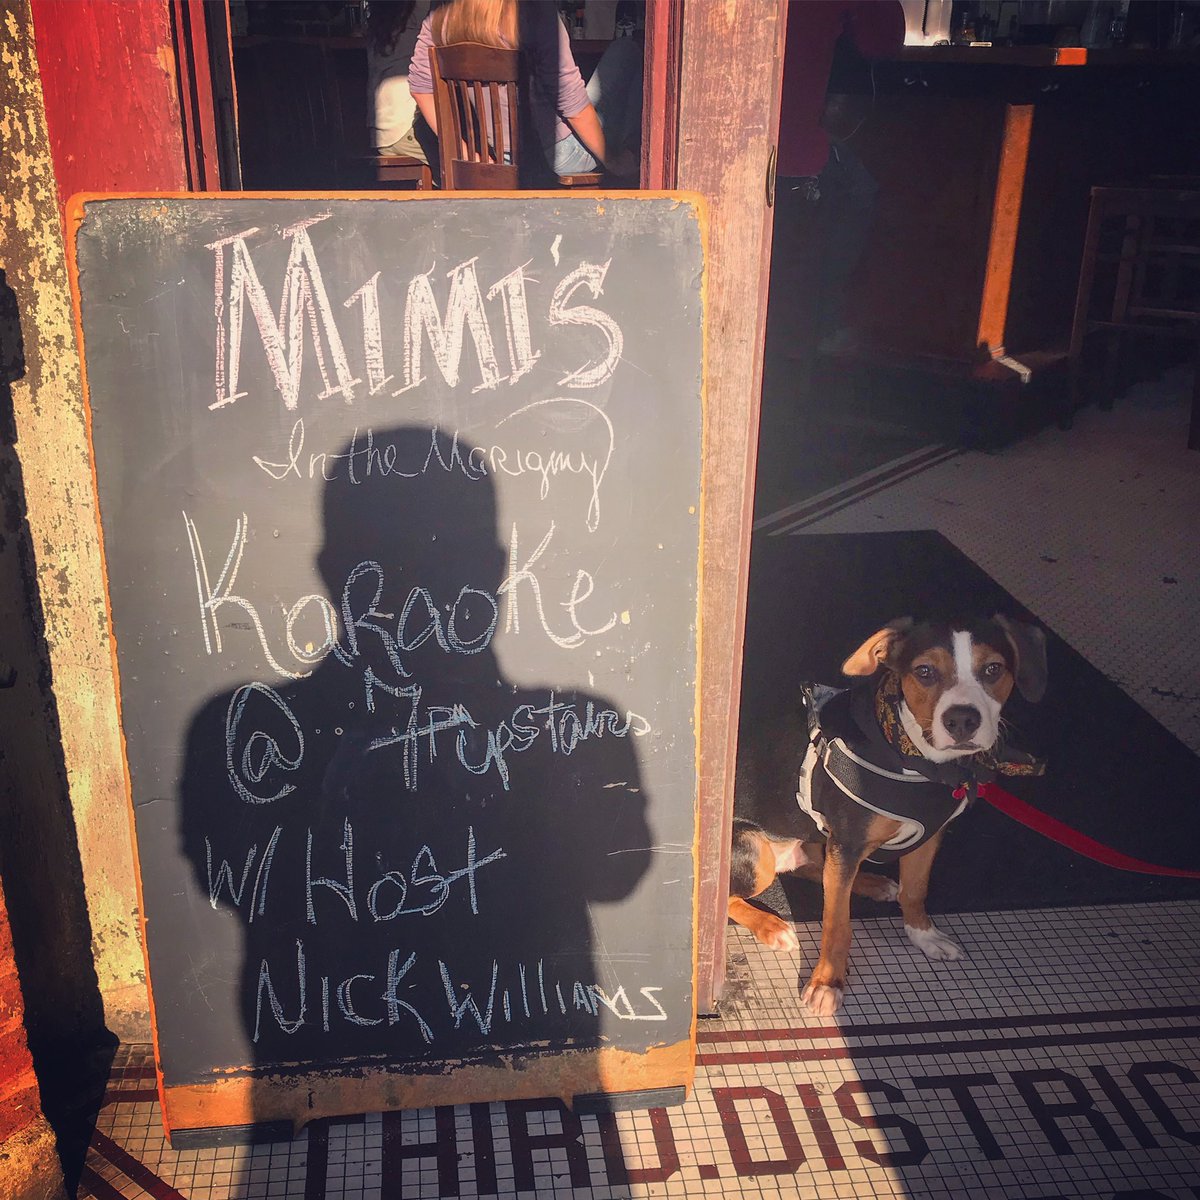 MIMI'S
In the Marigny
KaRaoKe
@ 7PM upstairs
w/ Host
NICK WILLIAMS
THIRD.DISTRIC